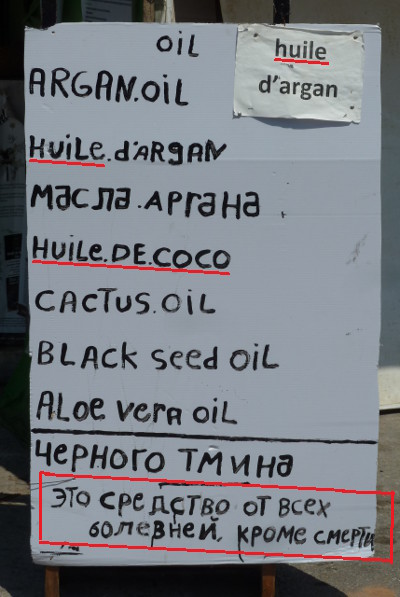 OiL
huile
d'argan
ARGAN.OiL
HUiLe.d'ARgAN
Масла.Аргана
HUiLe.DE.COCO
CACTUS.OiL
BLAck seed OiL
ALoe veRA OiL
ЧЕРНОГО ТМИНА
ЭТО СРЕДСТВО ОТ ВСЕХ
болевней, КРОМЕ СМЕРТИ